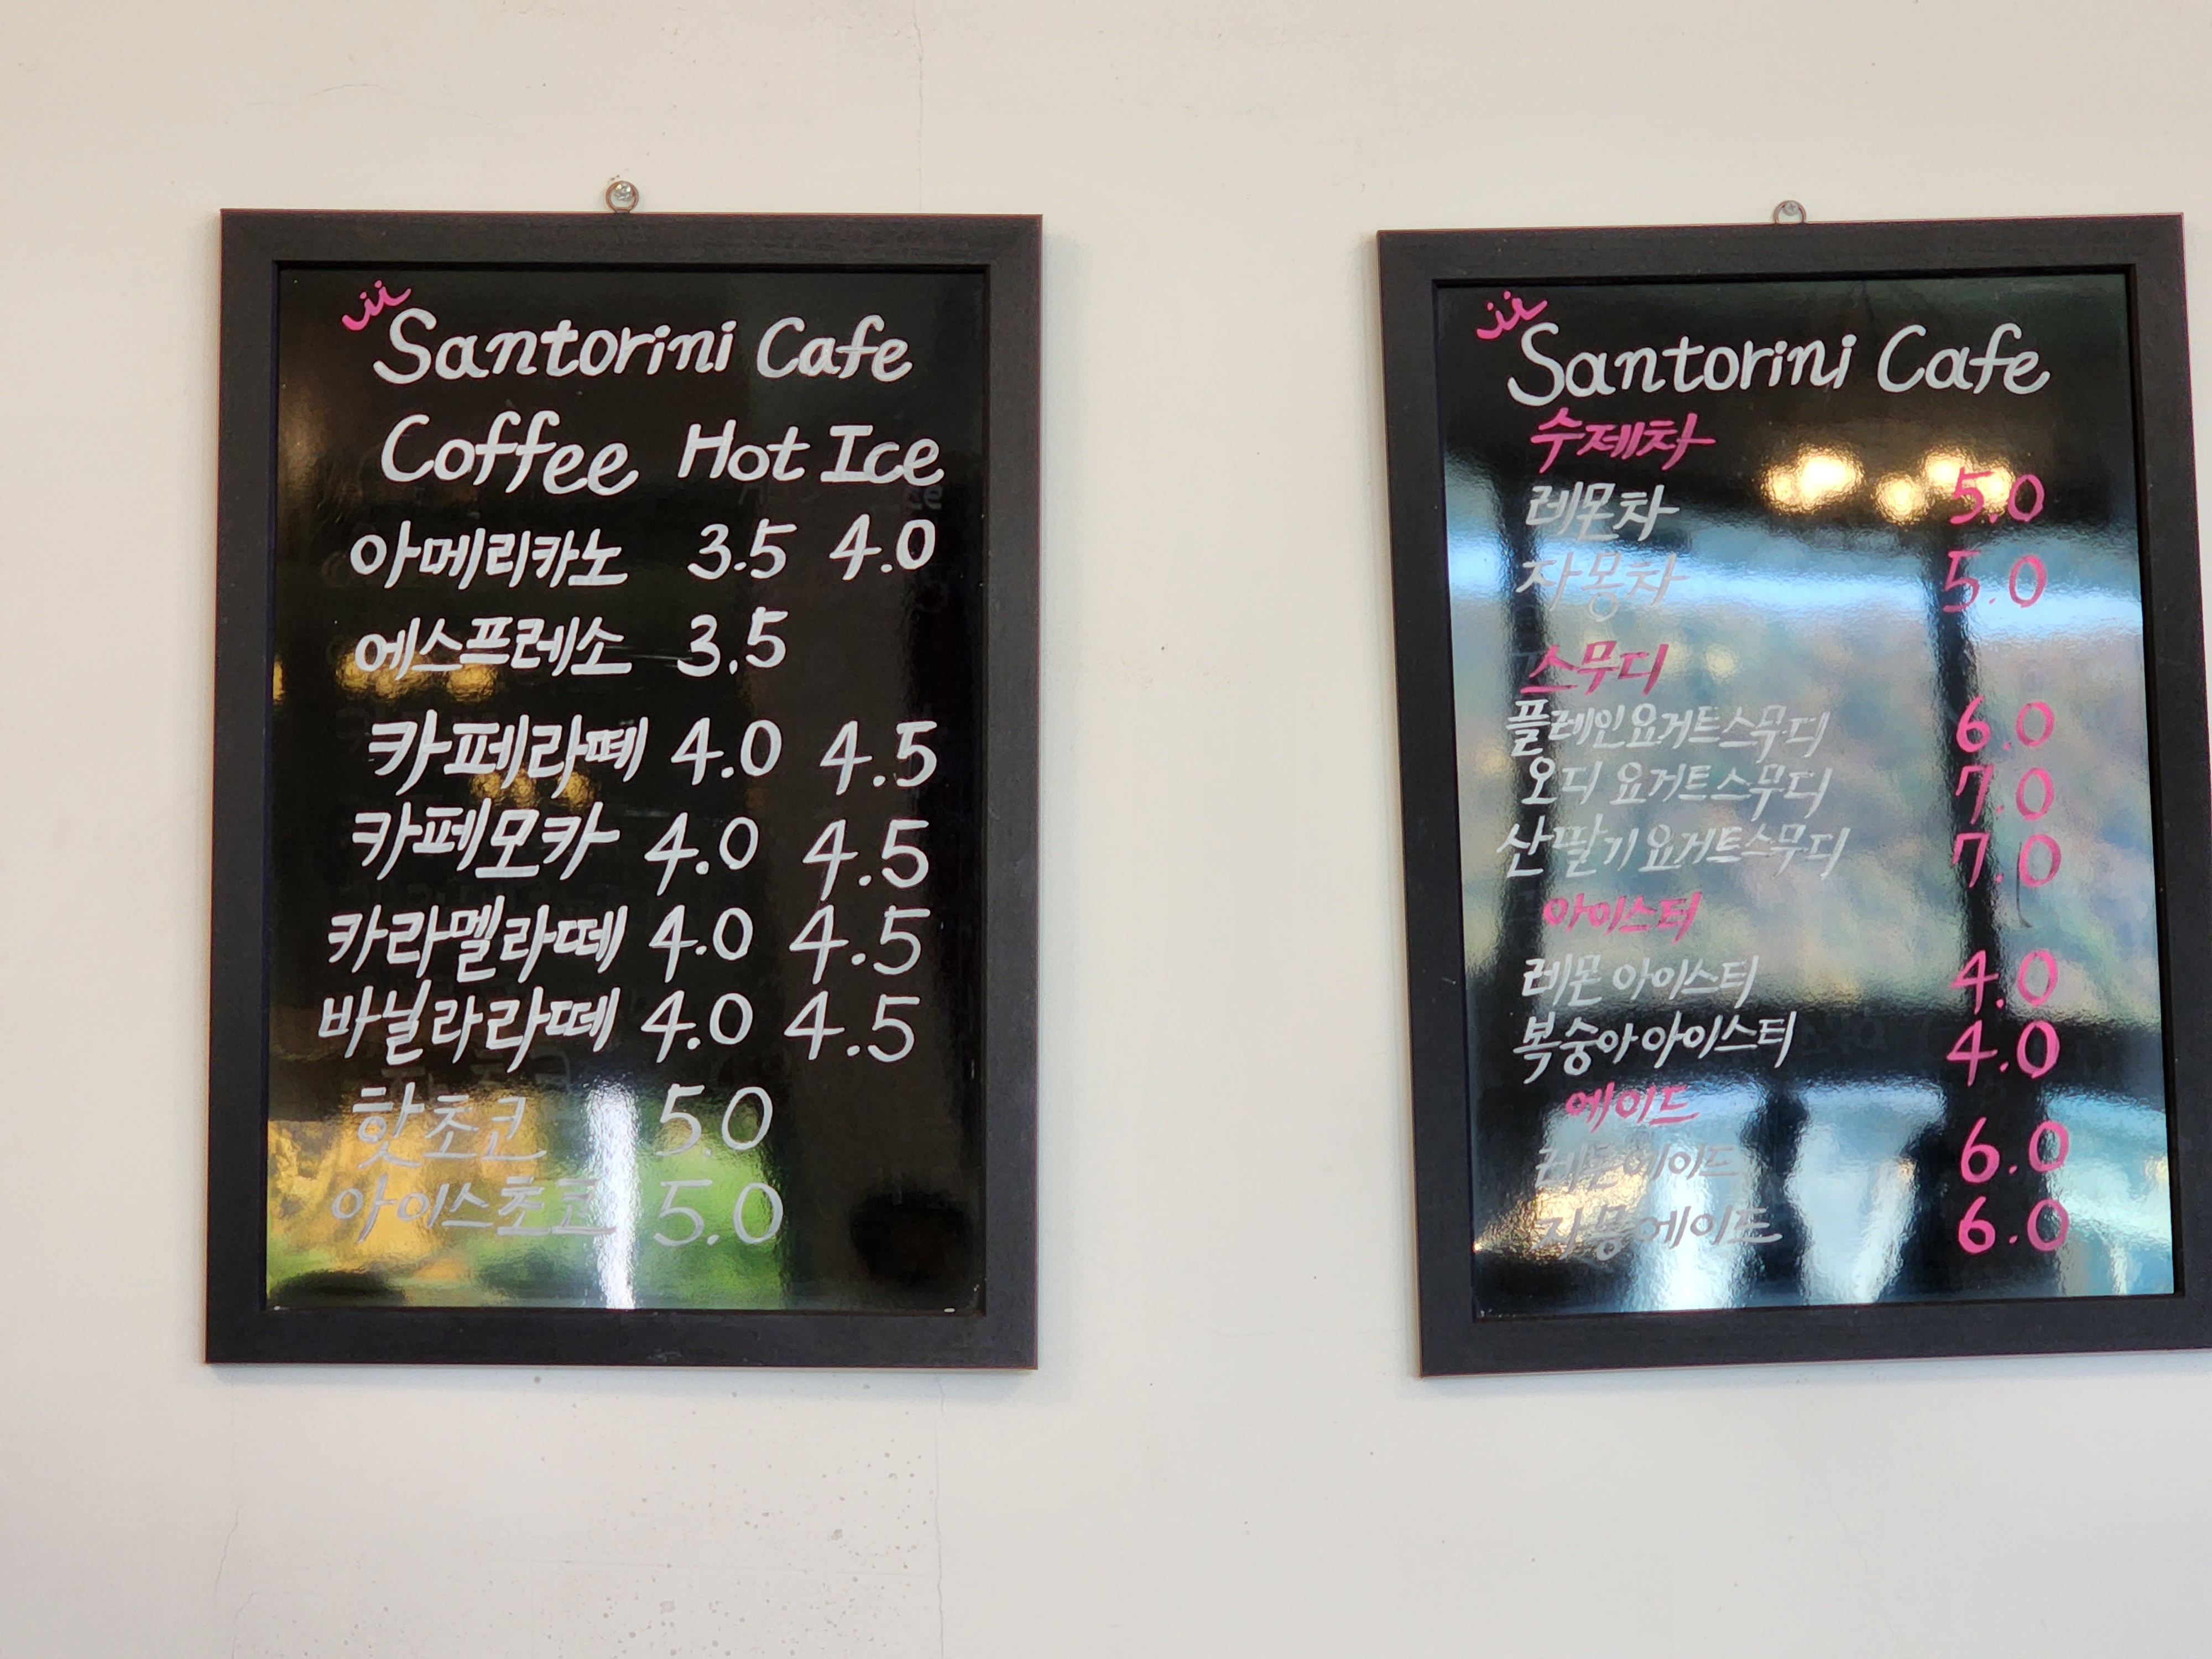 Santorini Cafe
Coffee Hot Ice
아메리카노 3.5 4.0
에스프레소 3.5
카페라떼 4.0 4.5
카페모카 4.0 4.5
카라멜라떼 4.0 4.5
바닐라라떼 4.0 4.5
핫초코 5.0
아이스초코 5.0
Santorini Cafe
수제차
레몬차 5.0
자몽차 5.0
스무디
플레인요거트스무디 6.0
오디 요거트스무디 7.0
산딸기요거트스무디 7.0
아이스티
레몬 아이스티 4.0
복숭아아이스티 4.0
에이드
레몬에이드 6.0
자몽에이드 6.0